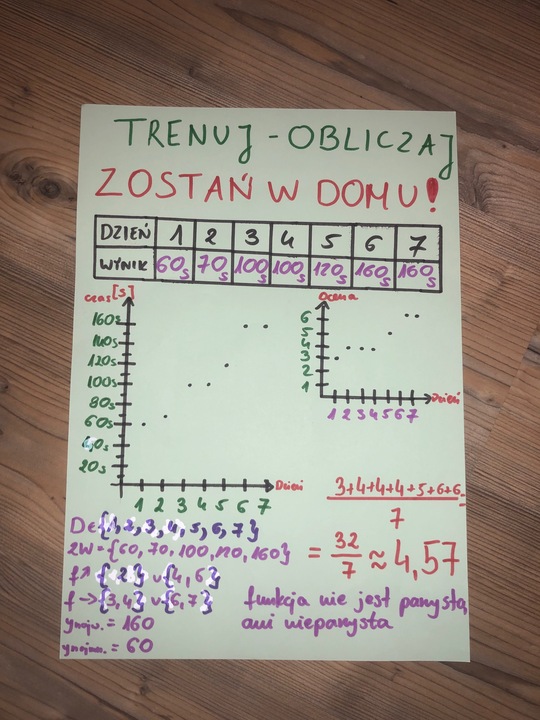 TRENUJ - OBLICZAJ
ZOSTAŃ W DOMU!
DZIEŃ 1 2 3 4 5 6 7
WYNIK 60s 70s 100s 100s 120s 160s 160s
czas [s]
160s
140s
120s
100s
80s
60s
40s
20s
1 2 3 4 5 6 7
Dzień
Ocena
6
5
4
3
2
1
1 2 3 4 5 6 7
Dzień
3+4+4+4+5+6+6 =
7
= 32/7 ≈ 4,57
D∈{1,2,3,4,5,6,7}
ZW={60,70,100,120,160}
f↗ {1,2,3}∪{4,6}
f→{3,4}∪{6,7}
y najw. = 160
y najmn. = 60
funkcja nie jest parzysta,
ani nieparzysta